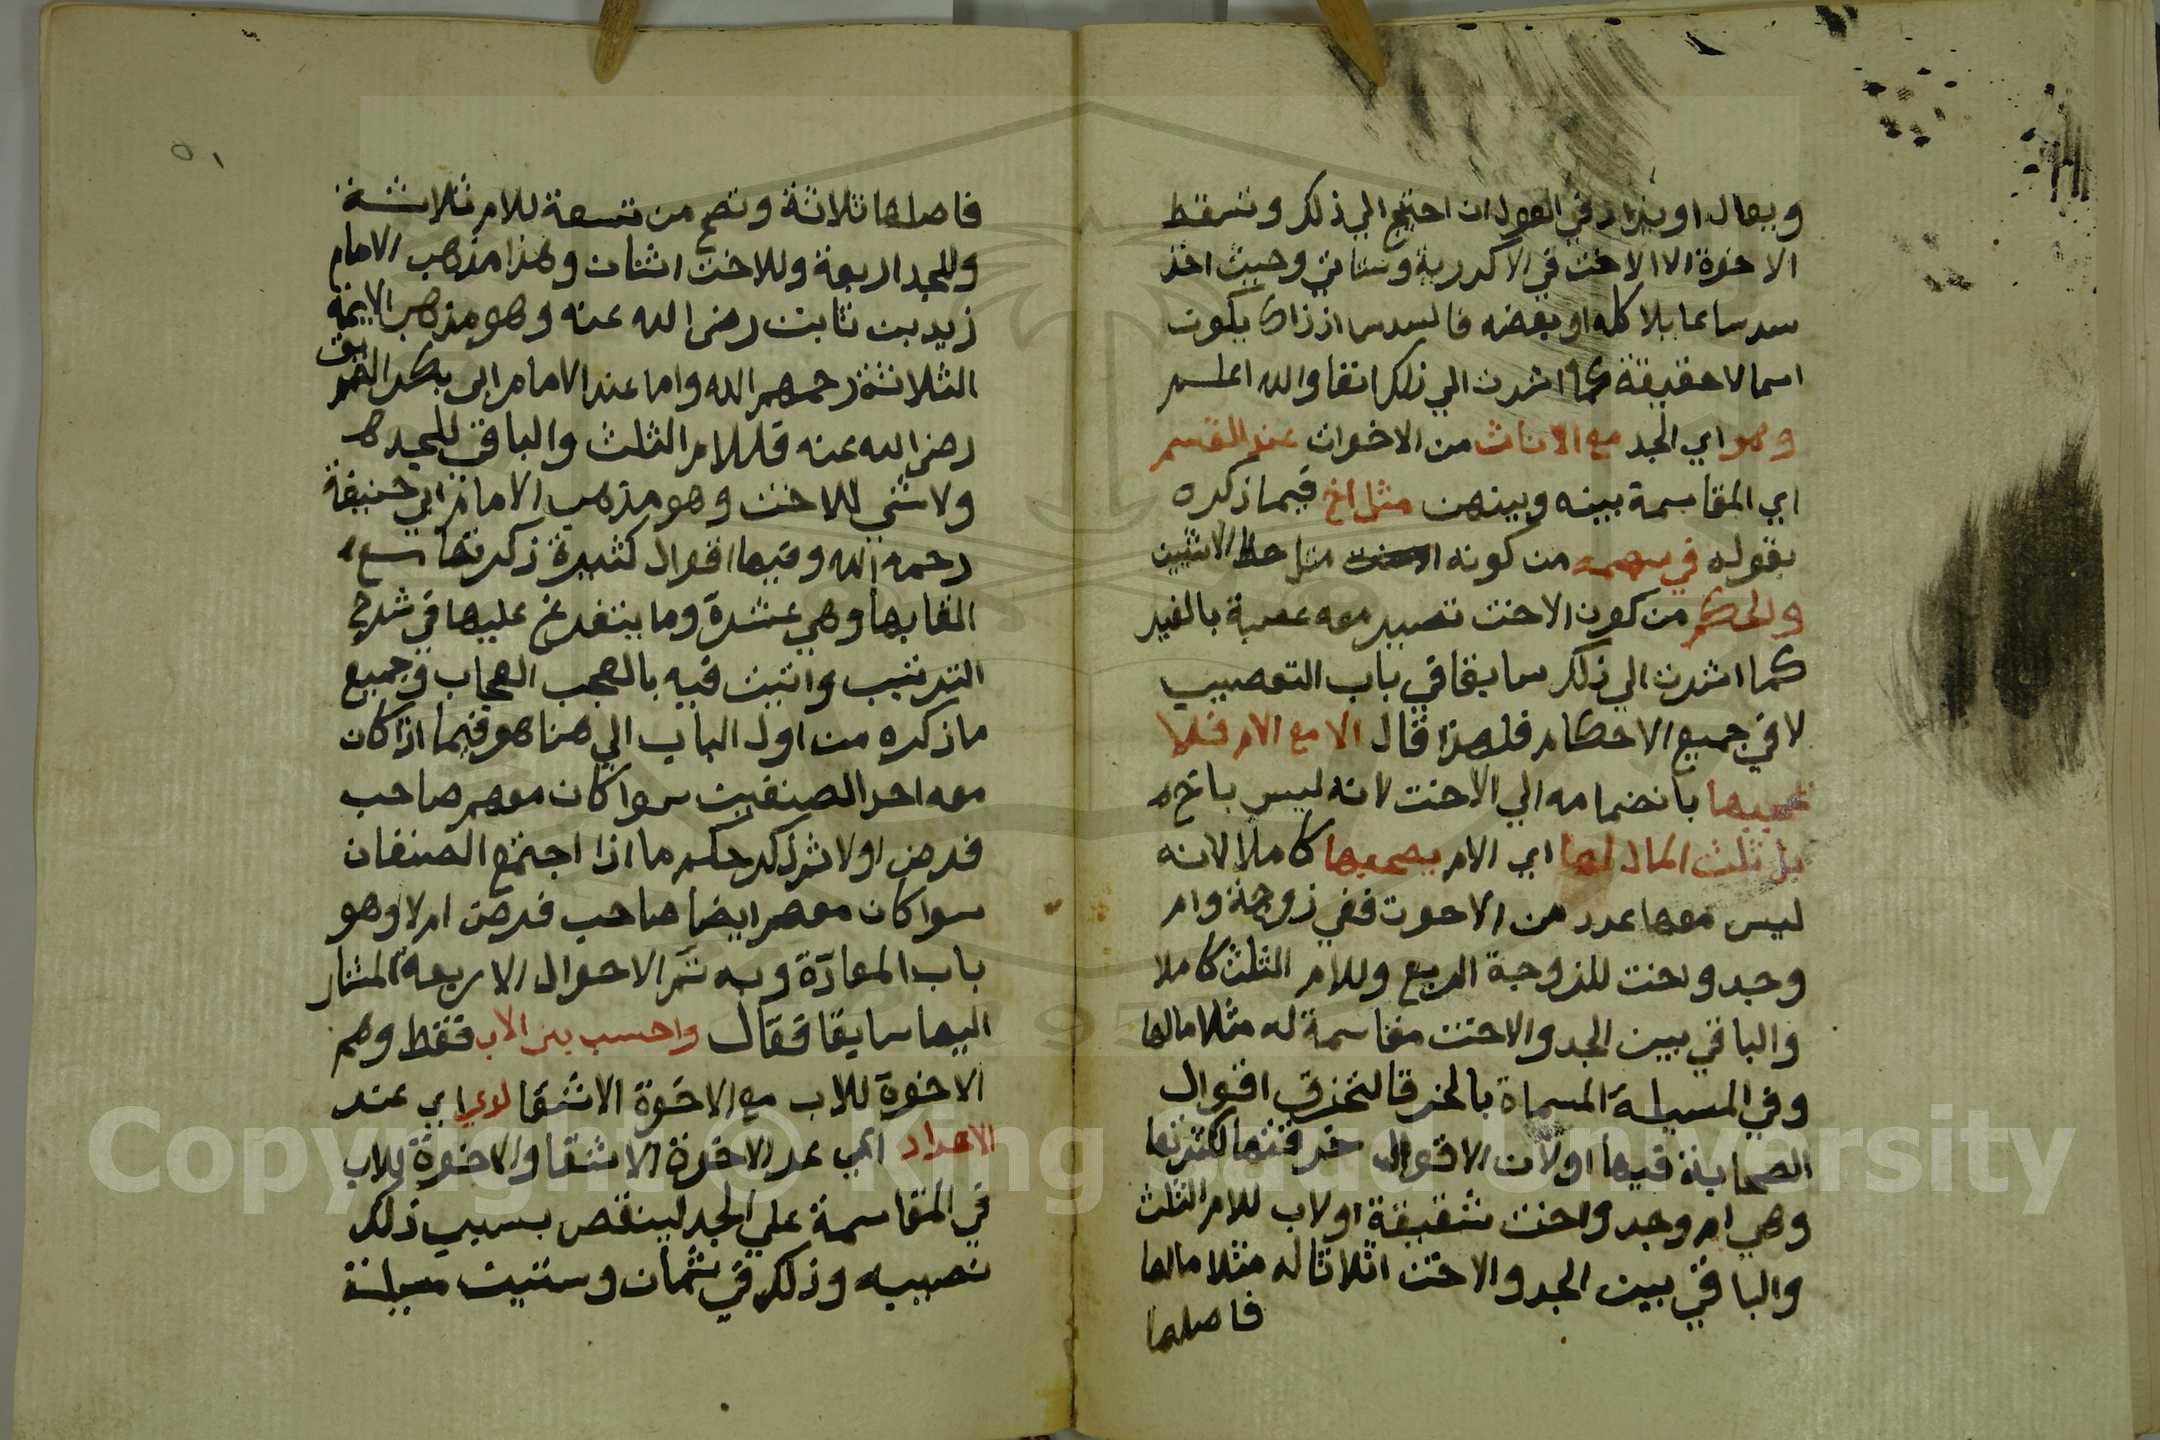 ويعال او يزاد في العول ان احتيج الي ذلك وتسقط
الاخوة الا الاخت في الاكدرية وستاتي وحيث اخذ
سدسا عايلا كله او بعضه فالسدس اذ ذاك يكون
اسما لا حقيقة كما اشرت الي ذلك انفا والله اعلم
وهو اي الجد مع الاناث من الاخوات عند القسم
اي المقاسمة بينه وبينهن مثل اخ فيما ذكره
بقوله في سهمه من كونه مثل حظ الانثيين
والحكم من كون الاخت تصير معه عصبة بالغير
كما اشرت الي ذلك سابقا في باب التعصيب
لا في جميع الاحكام فلهذا قال الا مع الام فلا
يحجبها بانضمامه الي الاخت لانه ليس باخ
بل ثلث المال لها اي الام يصحبها كاملا لانه
ليس معها عدد من الاخوت ففي زوجة وام
وجد واخت للزوجة الربع وللام الثلث كاملا
والباقي بين الجد والاخت مقاسمة له مثلا مالها
وفي المسيلة المسماة بالخرقا لتخرق اقوال
الصحابة فيها او لان الاقوال خرقتها لكثرتها
وهي ام وجد واخت شقيقة او لاب للام الثلث
والباقي بين الجد والاخت اثلاثا له مثلا مالها
فاصلها
٥١
فاصلها ثلاثة وتصح من تسعة للام ثلاثة
وللجد اربعة وللاخت اثنان وهذا مذهب الامام
زيد بن ثابت رضي الله عنه وهو مذهب الايمة
الثلاثة رحمهم الله واما عند الامام ابي بكر الصديق
رضي الله عنه فللام الثلث والباقي للجد
ولا شي للاخت وهو مذهب الامام ابي حنيفة
رحمه الله وفيها اقوال كثيرة ذكرتها مع
القابها وهي عشرة وما يتفرع عليها في شرح
الترتيب واتيت فيه بالعجب العجاب وجميع
ما ذكره من اول الباب الي هنا هو فيما اذا كان
معه احد الصنفين سوا كان معهم صاحب
فرض اولا ثم ذكر حكم ما اذا اجتمع الصنفان
سوا كان معهم ايضا صاحب فرض ام لا وهو
باب المعادّة وبه تتم الاحوال الاربعة المشار
اليها سابقا فقال واحسب بني الاب فقط وهم
الاخوة للاب مع الاخوة الاشقا لدي اي عند
الاعداد اي عد الاخوة الاشقا والاخوة للاب
في المقاسمة علي الجد لينقص بسبب ذلك
نصيبه وذلك في ثمان وستين مسيلة
Copyright © King Saud University